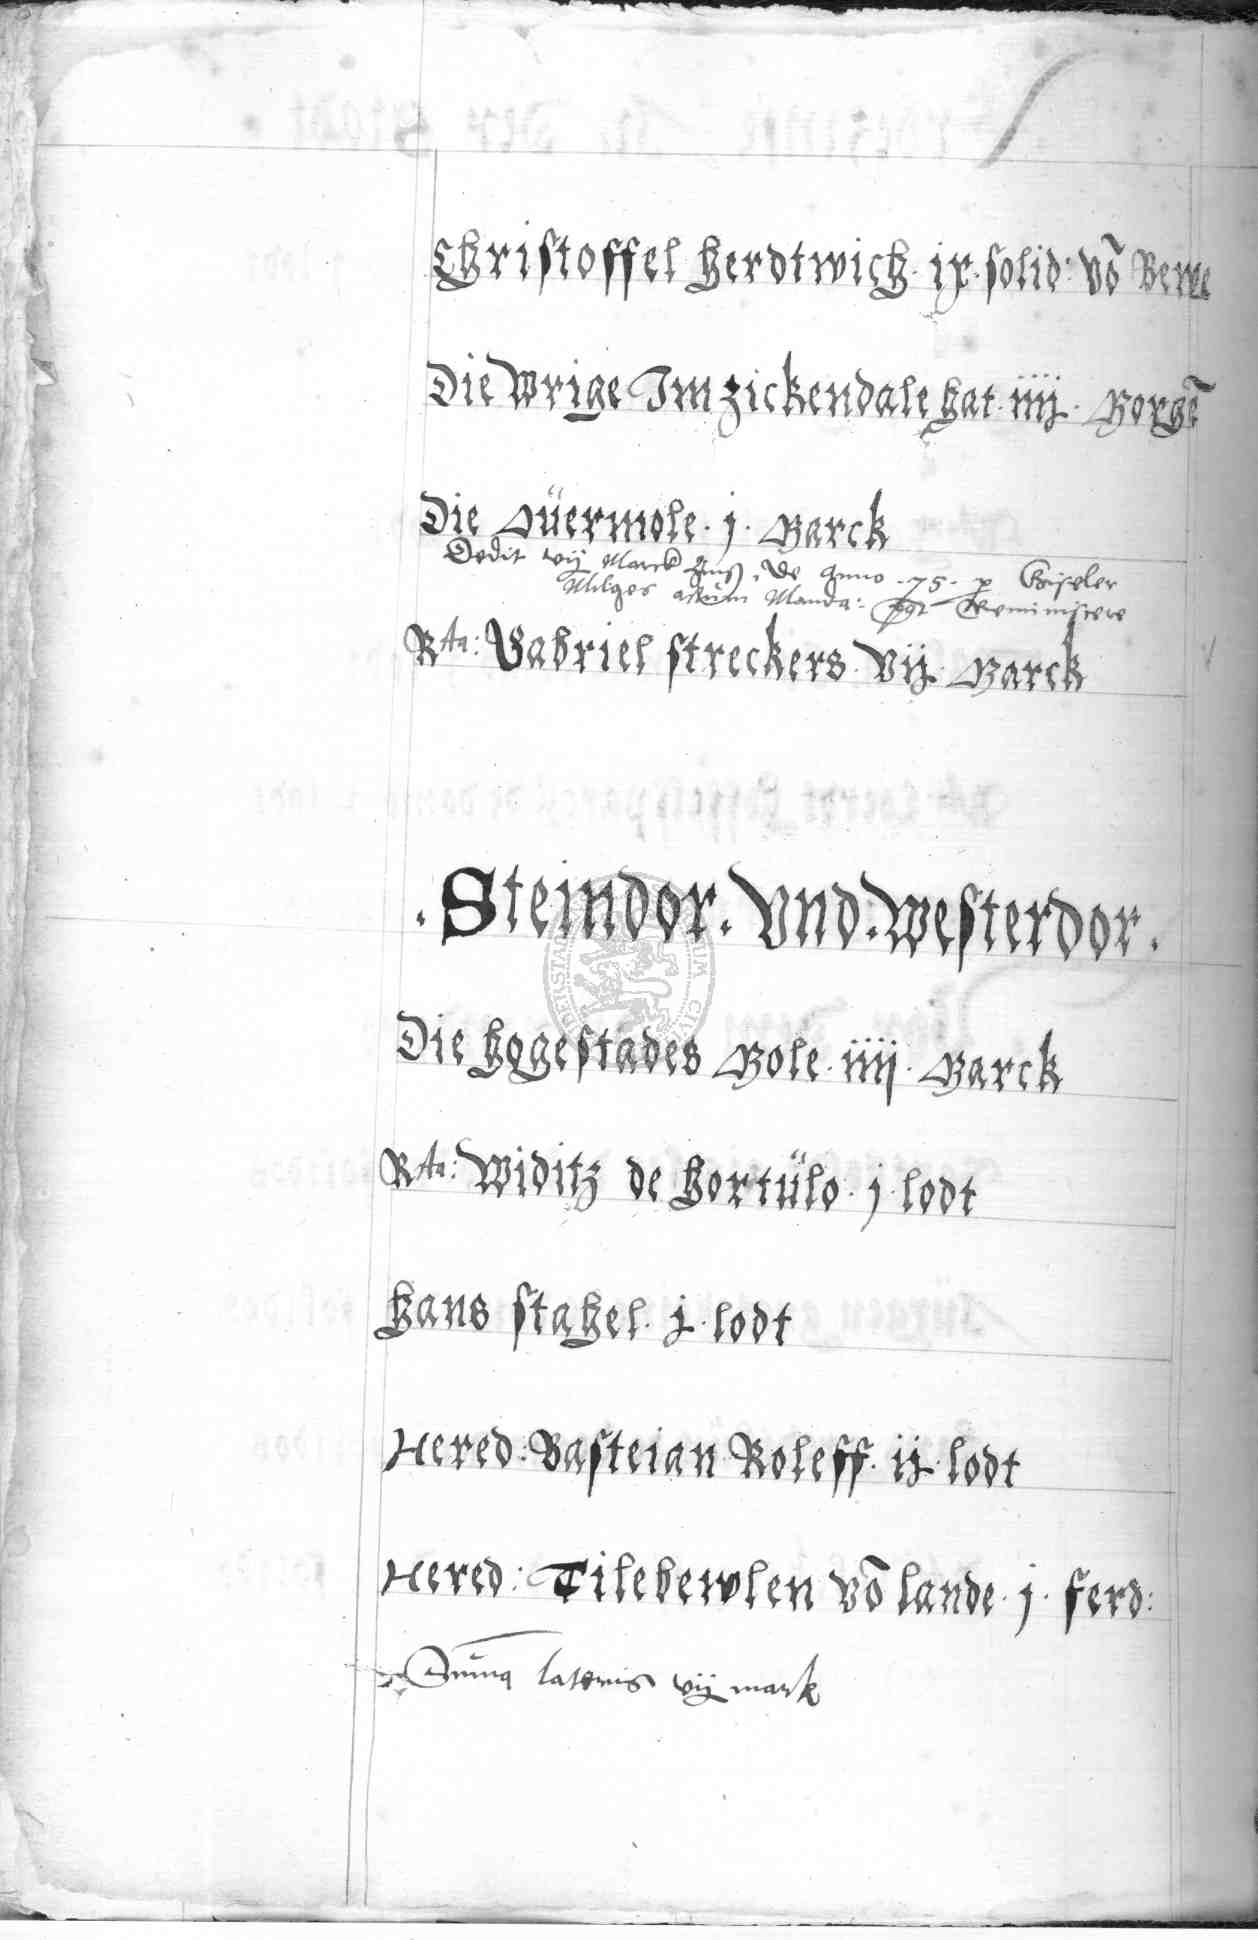 Christoffel Herdtwich · ix · solid: vō
Die Wrige Im Zickendale hat · iiij · Morgē
Die Üuermole · j · Marck
Dedit vij Marck · De anno · 75 · p Giseler
Milges Manda: Reminiscere
Rta: Gabriel streckers · vij · Marck
· Steindor · Vnd · Westerdor ·
Die hogestades Mole · iiij · Marck
Rta: Widitz de hortülo · j · lodt
Hans stahel · j · lodt
Hered: Basteian Roleff · ij · lodt
Hered: Tilebewlen vō lande · j · ferd:
Suma lateris vij mark